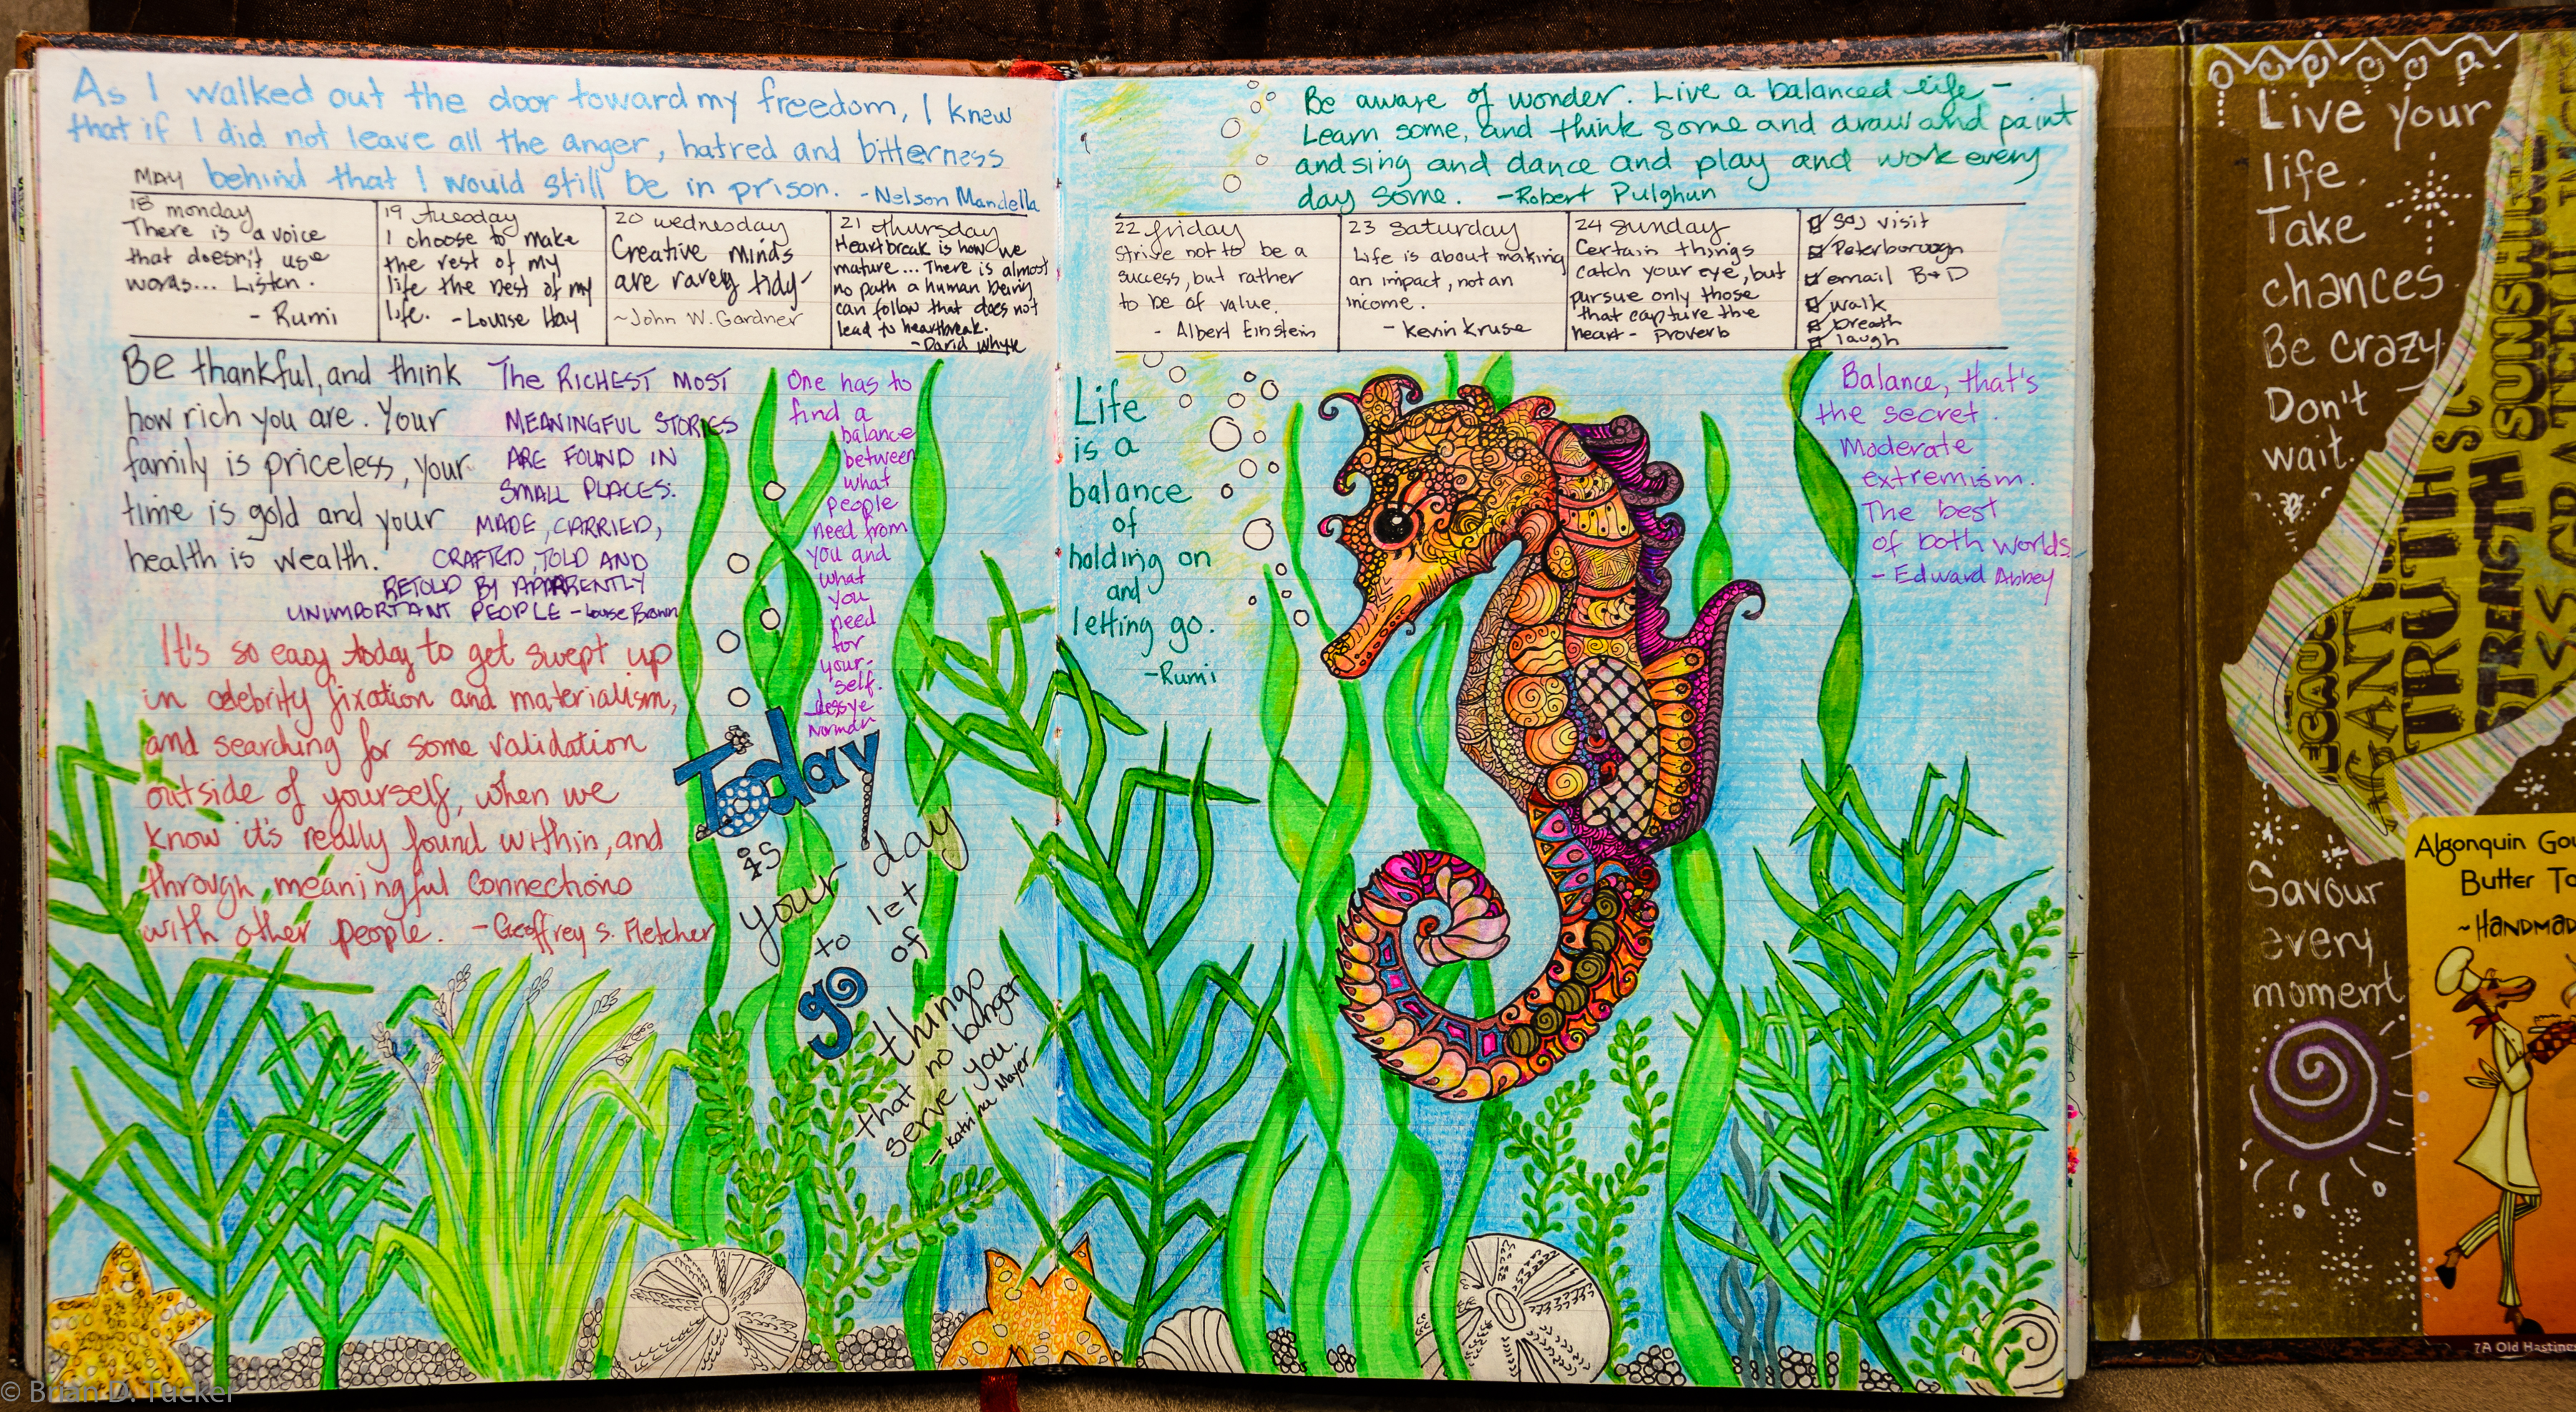 As I walked out the door toward my freedom, I knew
that if I did not leave all the anger, hatred and bitterness
behind that I would still be in prison. -Nelson Mandella
MAY
18 monday
There is a voice
that doesn't use
words... Listen.
- Rumi
19 tuesday
I choose to make
the rest of my
life the best of my
life. -Louise Hay
20 wednesday
Creative minds
are rarely tidy
~John W. Gardner
21 thursday
Heartbreak is how we
mature... There is almost
no path a human being
can follow that does not
lead to heartbreak.
-David Whyte
Be thankful, and think
how rich you are. Your
family is priceless, your
time is gold and your
health is wealth.
THE RICHEST MOST
MEANINGFUL STORIES
ARE FOUND IN
SMALL PLACES:
MADE, CARRIED,
CRAFTED, TOLD AND
RETOLD BY APPARENTLY
UNIMPORTANT PEOPLE -Louise Brown
One has to
find a
balance
between
what
people
need from
you and
what
you
need
for
your-
self.
-Jessye
Norman
It's so easy today to get swept up
in celebrity fixation and materialism,
and searching for some validation
outside of yourself, when we
know it's really found within, and
through meaningful connections
with other people. -Geoffrey S. Fletcher
Today
is
your day
to let
go of
things
that no longer
serve you.
-Katrina Mayer
Be aware of wonder. Live a balanced life -
Learn some, and think some and draw and paint
and sing and dance and play and work every
day some. -Robert Pulghun
22 friday
Strive not to be a
success, but rather
to be of value.
- Albert Einstein
23 saturday
Life is about making
an impact, not an
income.
- Kevin Kruse
24 sunday
Certain things
catch your eye, but
pursue only those
that capture the
heart - proverb
visit
Peterborough
email B+D
walk
breath
laugh
Life
is a
balance
of
holding on
and
letting go.
-Rumi
Balance, that's
the secret.
Moderate
extremism.
The best
of both worlds
- Edward Abbey
Live your
life.
Take
chances.
Be crazy.
Don't
wait.
TRUTH
STRENGTH
SUNSHINE
Savour
every
moment
Algonquin Gou
Butter Ta
~HANDMAD
7A Old Hastin
© Brian D. Tucker